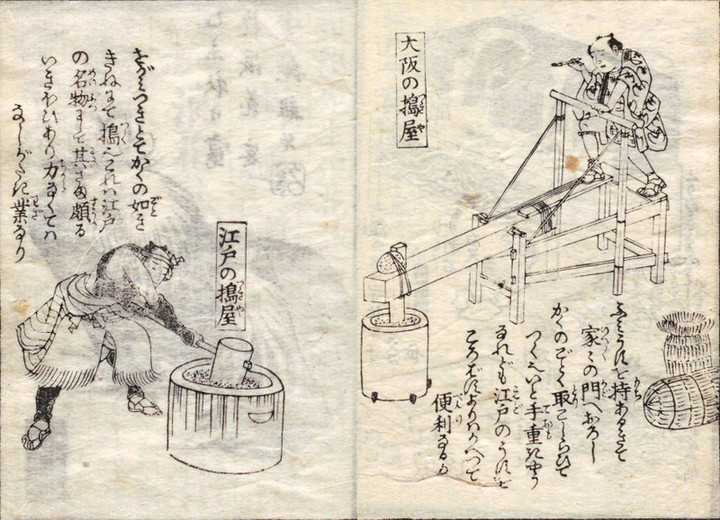 大阪の搗屋
ふミうすを持あるきて
家々の門へおろし
かくのごとく取こしらひて
つくさまいと手重きやう
なれども江戸のうすを
ころばすよりハかへつて
便利なるか
をがミつきとてかくの如き
きねにて搗くこれハ江戸
の名物にて其さま頗る
いきおひあり力なくてハ
なしがたき業なり
江戸の搗屋